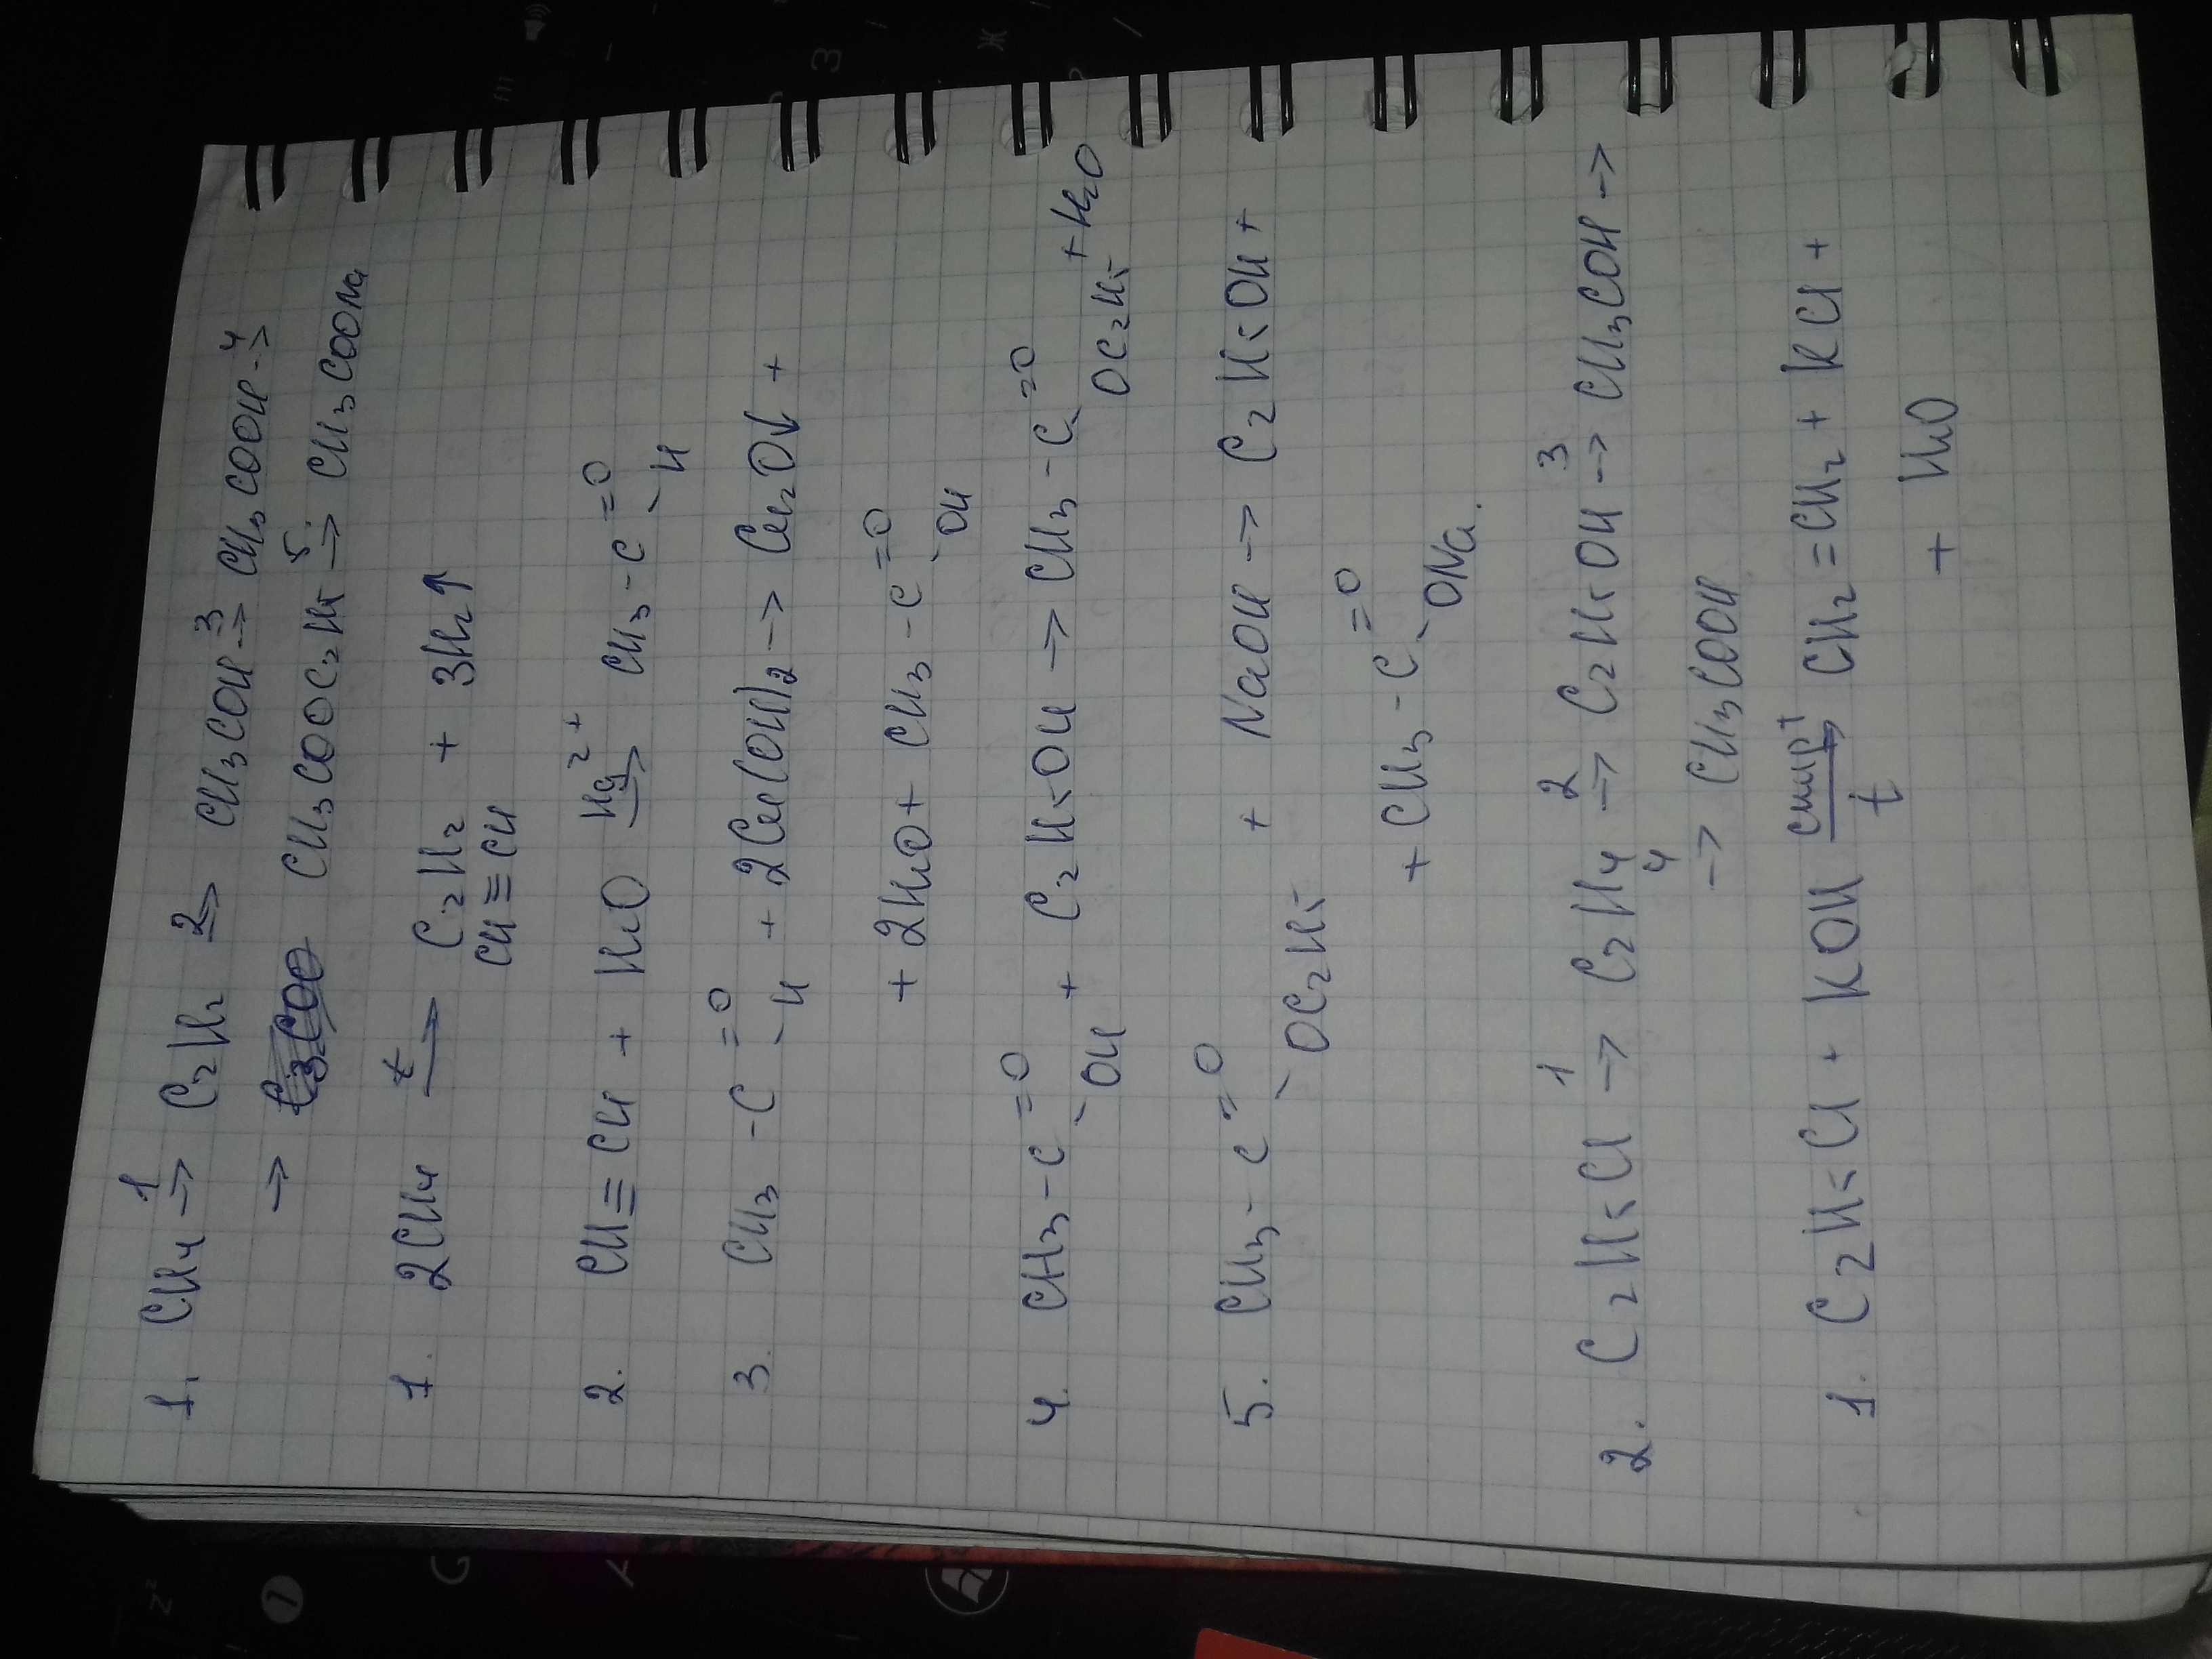 1. CH4 →1 C2H2 →2 CH3COH →3 CH3COOH →4
→ CH3COOC2H5 →5 CH3COONa
1. 2CH4 →t C2H2 + 3H2↑
CH≡CH
2. CH≡CH + H2O →Hg2+ CH3-C=O
H
3. CH3-C=O
H + 2Cu(OH)2 → Cu2O↓ +
+ 2H2O + CH3-C=O
OH
4. CH3-C=O + C2H5OH → CH3-C=O + H2O
OH OC2H5
5. CH3-C=O + NaOH → C2H5OH +
OC2H5
+ CH3-C=O
ONa.
2. C2H5Cl →1 C2H4 →2 C2H5OH →3 CH3COH →
4
→ CH3COOH
1. C2H5Cl + KOH →спирт CH2=CH2 + KCl +
t
+ H2O